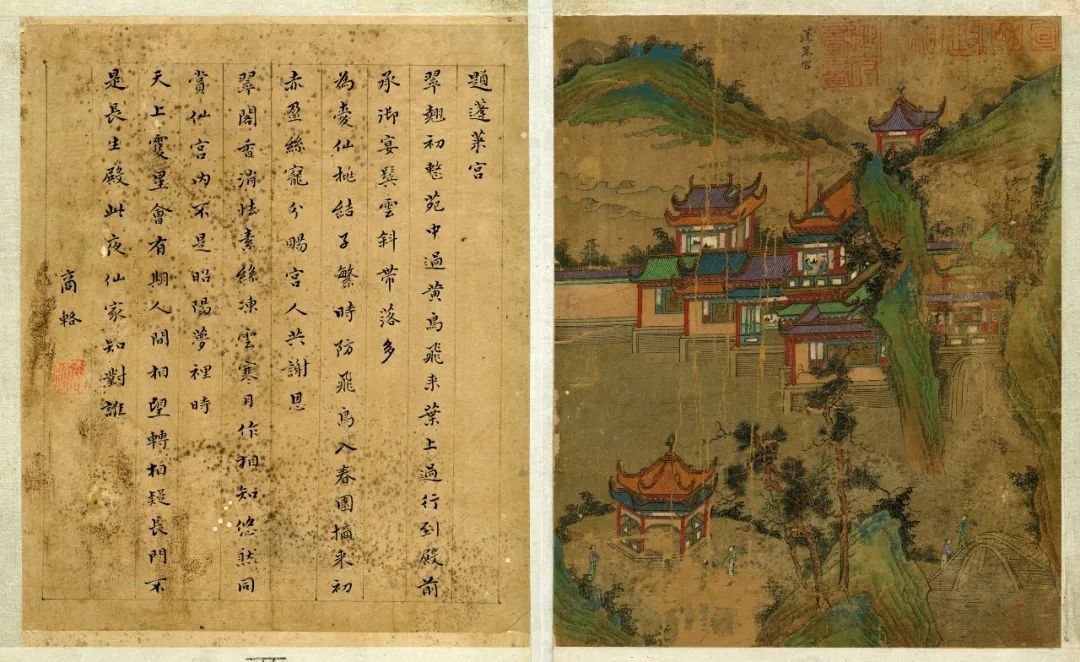 蓬萊宮
題蓬萊宮
翠翹初整苑中過黃鳥飛来葉上過行到殿前
承御宴鬂雲斜帶落多
為憂仙桃結子繁時防飛鳥入春園摘来初
赤盈絲寵分賜宮人共謝恩
翠閣香消怯素絲凍雲寒月作相知悠然同
賞仙宮內不是昭陽夢裡時
天上雙星會有期人間相望轉相疑長門不
是長生殿此夜仙家知對誰
商輅